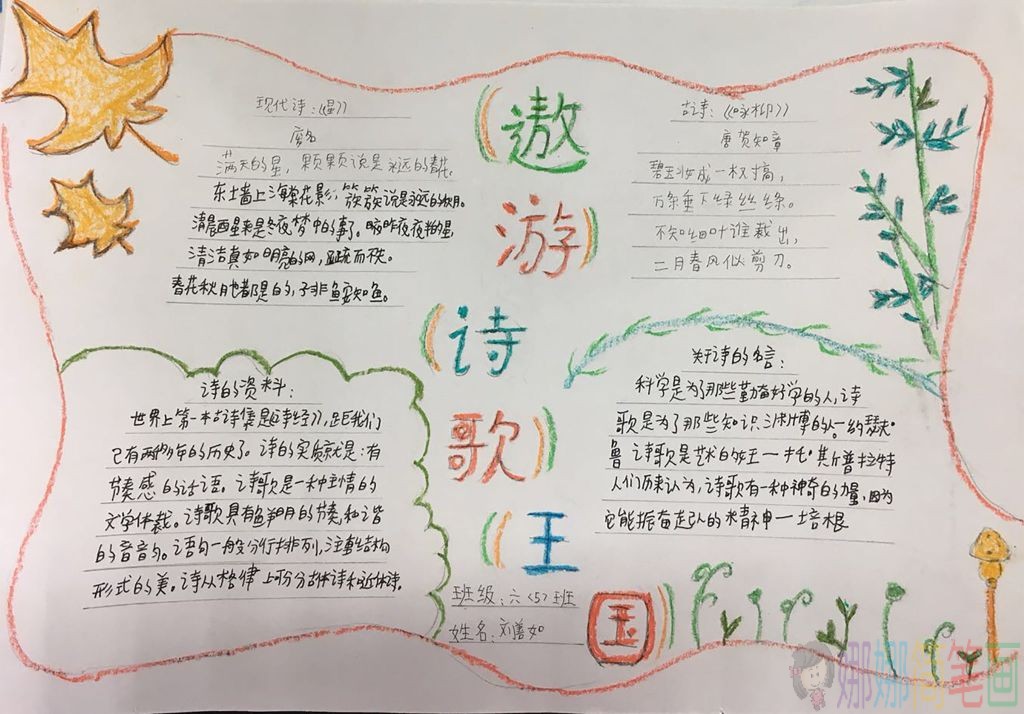 遨
游
诗
歌
王
国
现代诗:《星》
废名
满天的星,颗颗说是永远的春花,
东土墙上海棠花影,簇簇说是永远的秋月。
清晨醒来是冬夜梦中的事了。昨夜夜的星
清洁真如明亮的网,疏而不失。
春花秋月也都是的,子非鱼安知鱼。
古诗:《咏柳》
唐贺知章
碧玉妆成一树高,
万条垂下绿丝绦。
不知细叶谁裁出,
二月春风似剪刀。
诗的资料:
世界上第一本古诗集是《诗经》,距我们
已有两千多年的历史了。诗的实质就是:有
节奏感的话语。诗歌是一种主情的
文学体裁。诗歌具有鲜明的节奏,和谐
的音韵。语句一般分行排列,注重结构
形式的美。诗从格律上可分古体诗和近体诗。
关于诗的名言:
科学是为了那些勤奋好学的人,诗
歌是为了那些知识渊博的人。—约瑟夫·
鲁 诗歌是艺术的女王—托·斯普拉特
人们历来认为,诗歌有一种神奇的力量,因为
它能振奋起人的精神—培根
班级:六〈5〉班
姓名:刘善如
娜娜简笔画